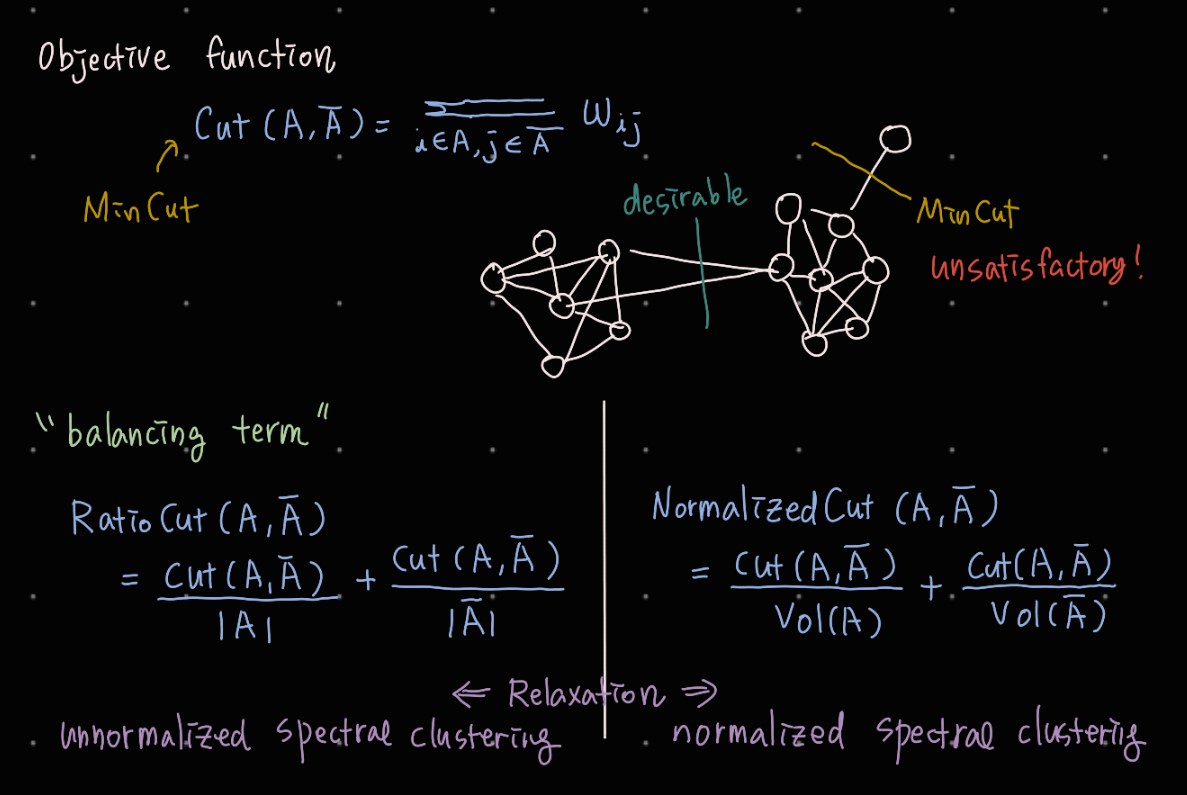 Objective function
Cut (A, Ā) = Σ i∈A, j∈Ā Wij
MinCut
desirable
MinCut
unsatisfactory!
"balancing term"
RatioCut (A, Ā)
= Cut (A, Ā) / |A| + Cut (A, Ā) / |Ā|
NormalizedCut (A, Ā)
= Cut (A, Ā) / Vol(A) + Cut(A, Ā) / Vol(Ā)
⇐ Relaxation ⇒
unnormalized spectral clustering
normalized spectral clustering